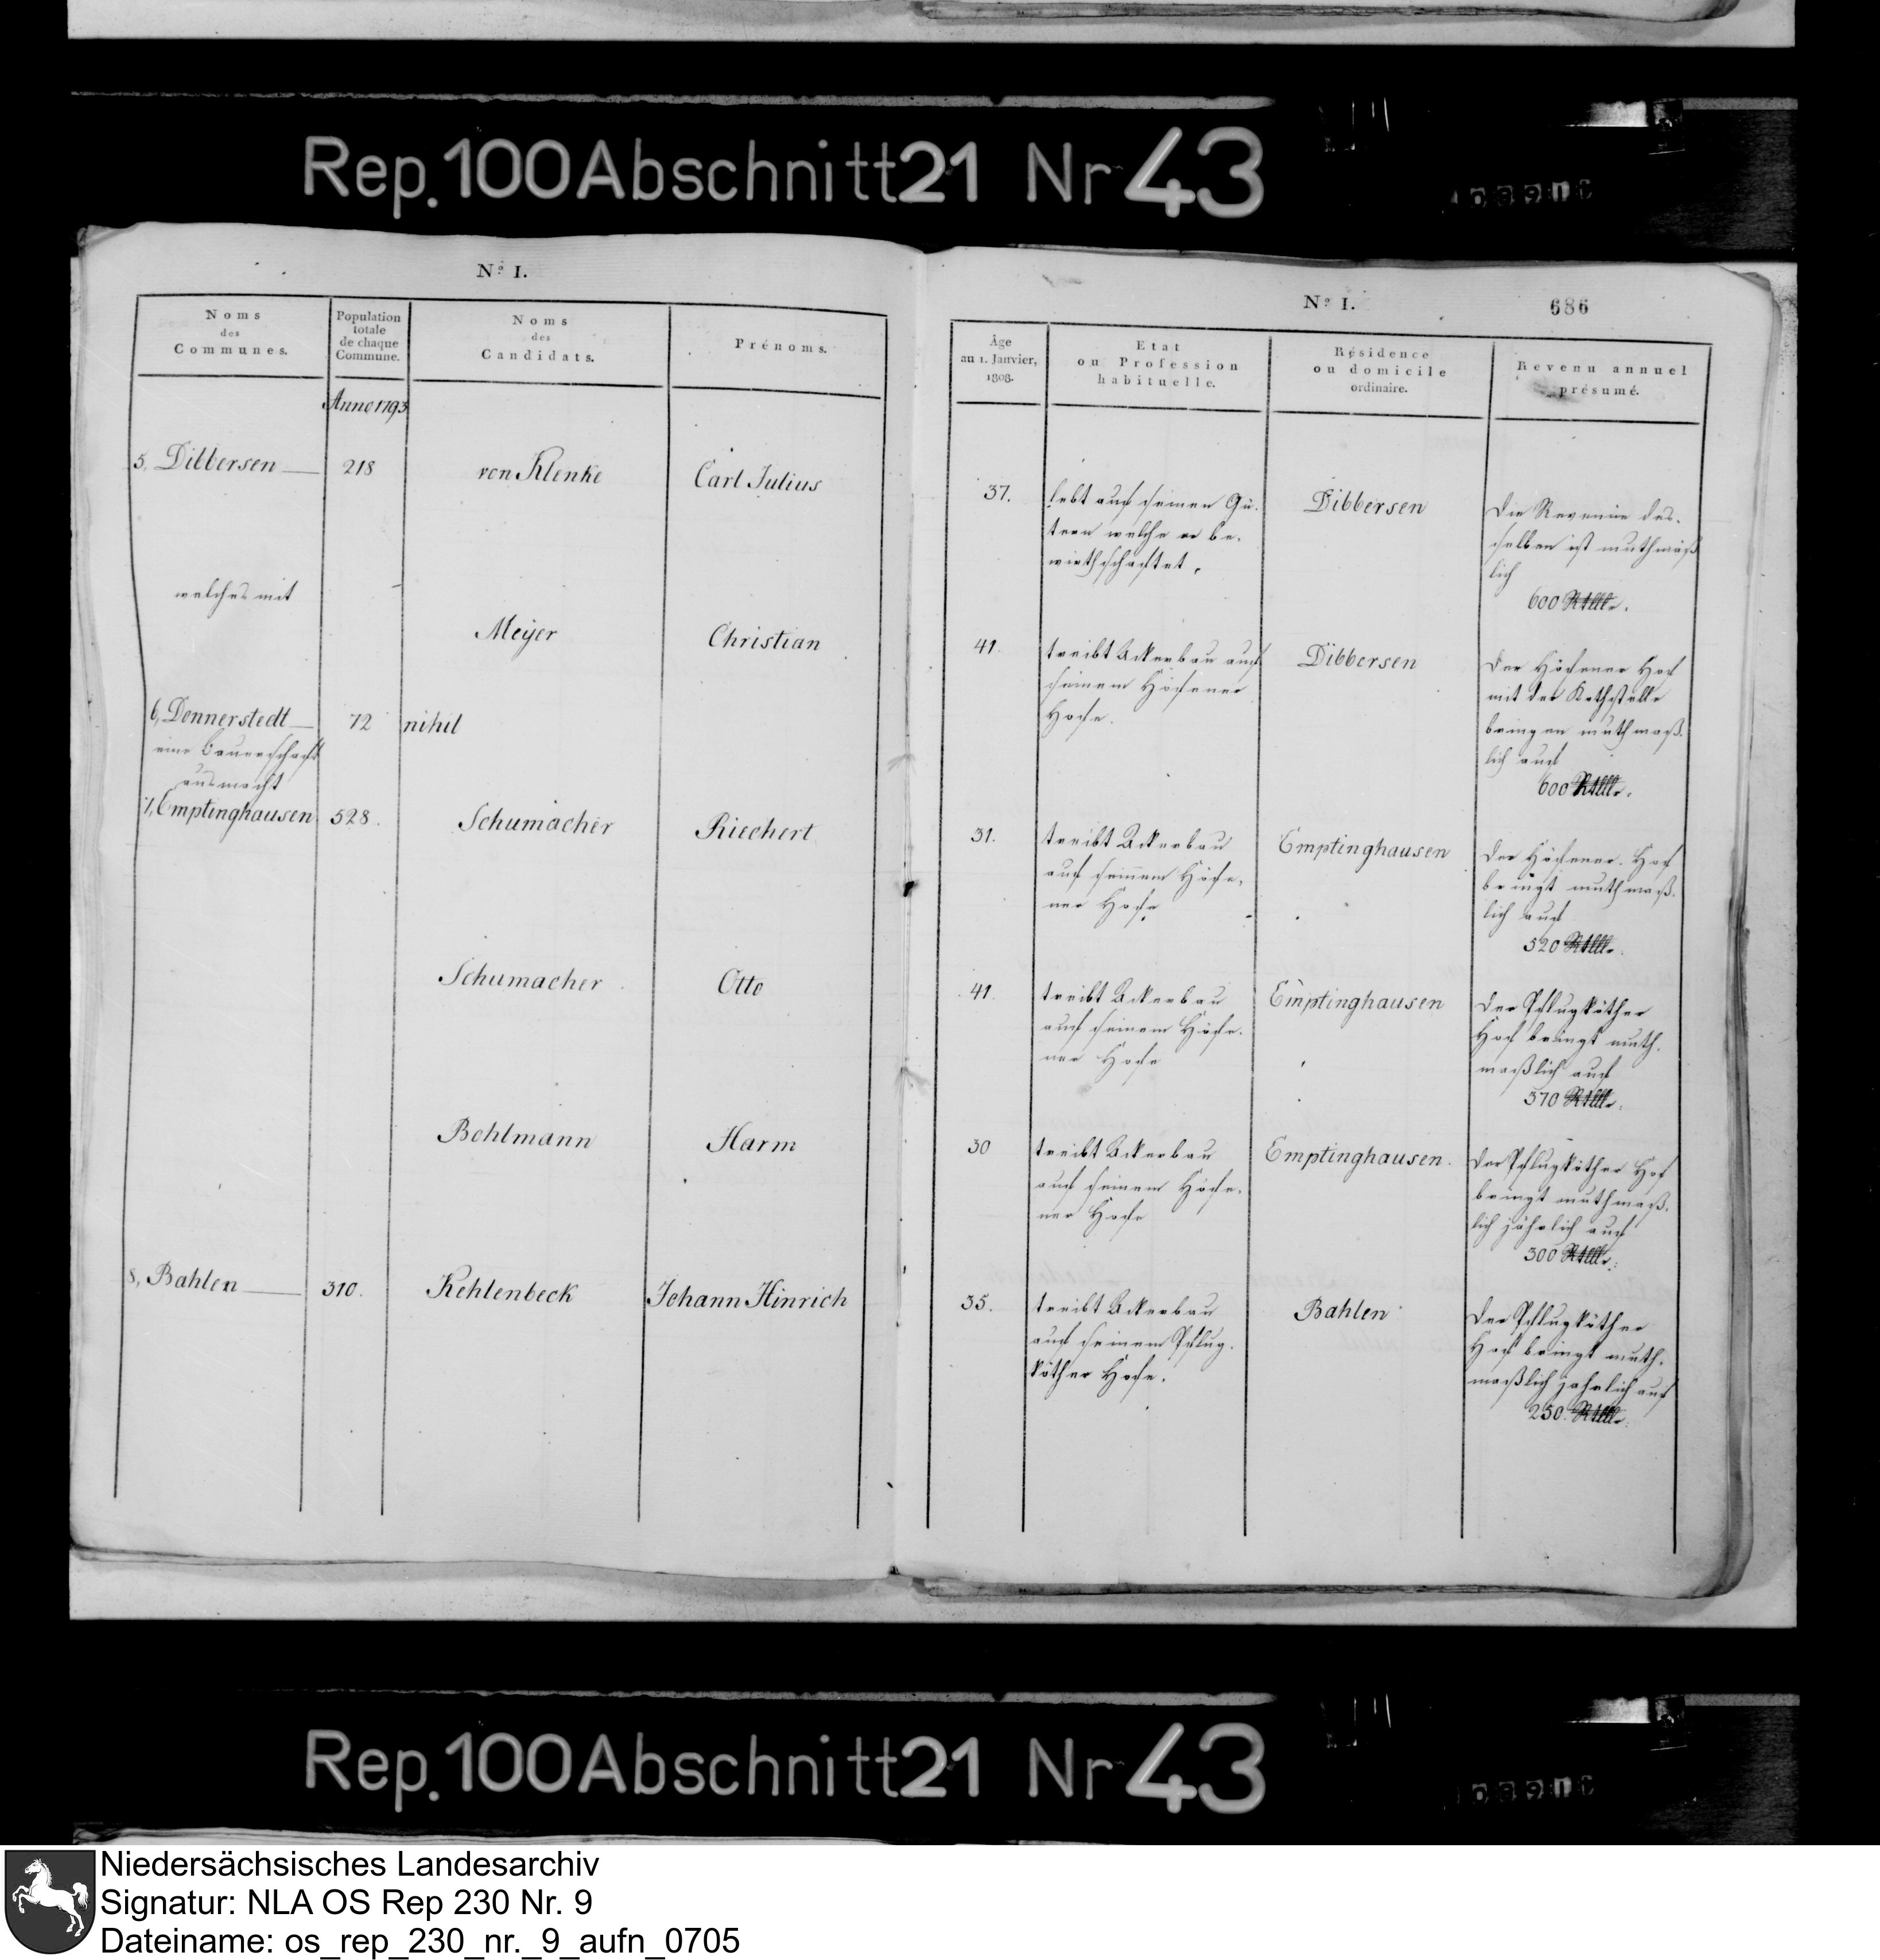 Rep. 100 Abschnitt 21 Nr 43
Nº I.
Noms
des
Communes.
Population
totale
de chaque
Commune.
Noms
des
Candidats.
Prénoms.
Anno 1793
5, Dibbersen
218
von Klenke
Carl Julius
welches mit
Meijer
Christian
6, Donnerstedt
72
nihil
eine Bauerschaft
ausmacht
7, Emptinghausen
528.
Schumacher
Riechert
Schumacher
Otto
Bohlmann
Harm
8, Bahlen
310.
Kohlenbeck
Johann Hinrich
Nº I.
686
Âge
au 1. Janvier,
1808.
Etat
ou Profession
habituelle.
Résidence
ou domicile
ordinaire.
Revenu annuel
présumé.
37.
lebt auf seinen Gü-
tern welche er be-
wirthschaftet.
Dibbersen
Die Revenüe des-
selben ist muthmaß
lich
600 Rthlr.
41.
treibt Ackerbau auf
seinem Höfener
Hofe.
Dibbersen
Der Höfener Hof
mit der Kothstelle
bringen muthmaß-
lich auf
600 Rthlr.
31.
treibt Ackerbau
auf seinem Höfe-
ner Hofe
Emptinghausen
Der Höfener Hof
bringt muthmaß-
lich auf
520 Rthlr.
41.
treibt Ackerbau
auf seinem Höfe-
ner Hofe
Emptinghausen
Der Pflugköther
Hof bringt muth-
maßlich auf
370 Rthlr.
30
treibt Ackerbau
auf seinem Höfe-
ner Hofe
Emptinghausen.
Der Pflugköther Hof
bringt muthmaß-
lich jährlich auf
300 Rthlr.
35.
treibt Ackerbau
auf seinem Pflug-
köther Hofe.
Bahlen
Der Pflugköther
Hof bringt muth-
maßlich jährlich auf
250. Rthlr.
Rep. 100 Abschnitt 21 Nr 43
Niedersächsisches Landesarchiv
Signatur: NLA OS Rep 230 Nr. 9
Dateiname: os_rep_230_nr._9_aufn_0705